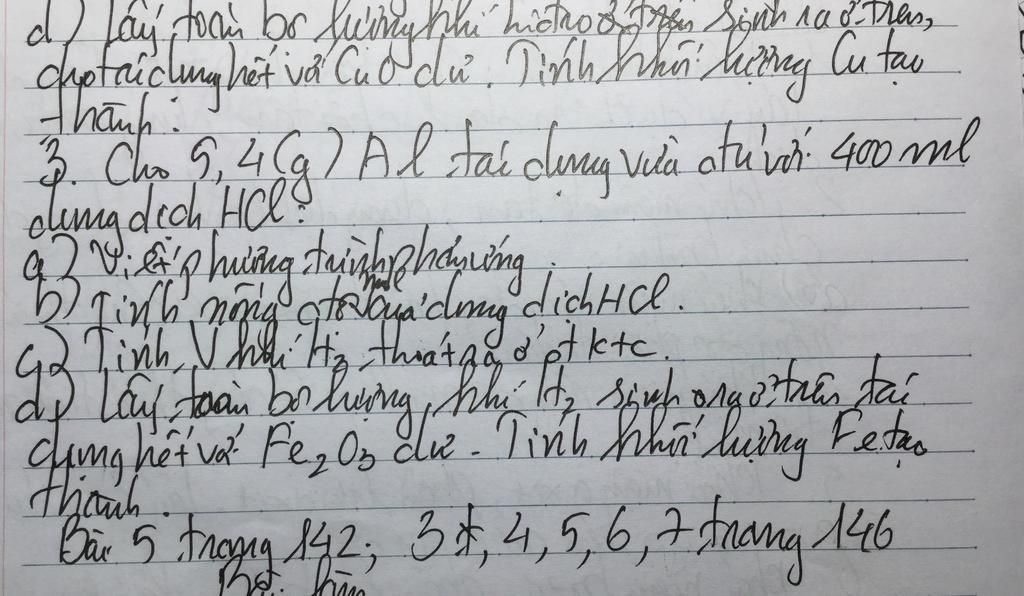 d) Lấy toàn bộ lượng khí hiđro ở trên sinh ra ở trên,
cho tác dụng hết với CuO dư. Tính khối lượng Cu tạo
thành.
3. Cho 5,4(g) Al tác dụng vừa đủ với 400 ml
dung dịch HCl.
a) Viết phương trình phản ứng.
b) Tính nồng độ mol của dung dịch HCl.
c) Tính V khí H₂ thoát ra ở đktc.
d) Lấy toàn bộ lượng khí H₂ sinh ra ở trên tác
dụng hết với Fe₂O₃ dư. Tính khối lượng Fe tạo
thành.
Bài 5 trang 142; 3, 4, 5, 6, 7 trang 146